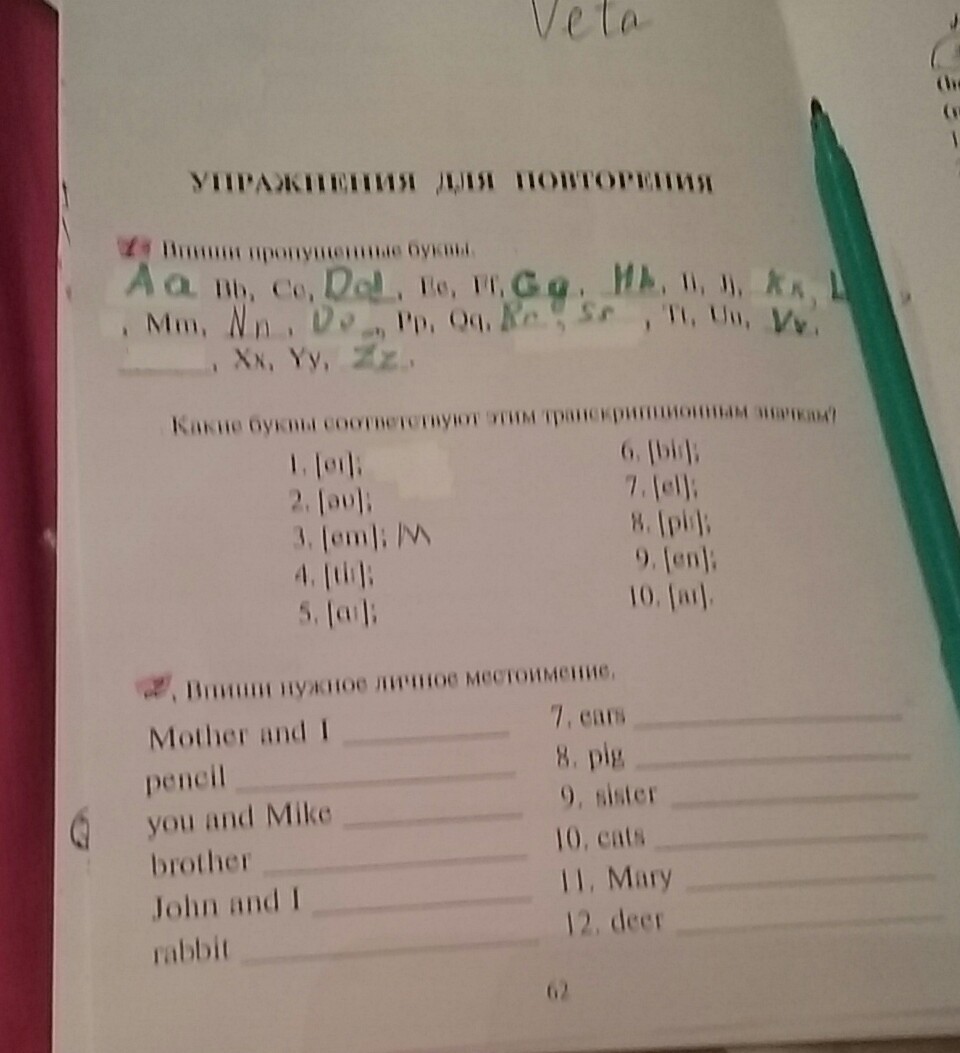 Veta
УПРАЖНЕНИЯ ДЛЯ ПОВТОРЕНИЯ
Впиши пропущенные буквы.
Aa Bb, Cc, Dd, Ee, Ff, Gg, Hh, Ii, Jj, Kk, L
, Mm, Nn, Oo, Pp, Qq, Rr, Ss, Tt, Uu, Vv,
, Xx, Yy, Zz.
Какие буквы соответствуют этим транскрипционным значкам?
1. [eɪ];
2. [əʊ];
3. [em]; M
4. [ti:];
5. [ɑ:];
6. [bi:];
7. [el];
8. [pi:];
9. [en];
10. [aɪ].
2. Впиши нужное личное местоимение.
Mother and I
pencil
you and Mike
brother
John and I
rabbit
7. ears
8. pig
9. sister
10. cats
11. Mary
12. deer
62